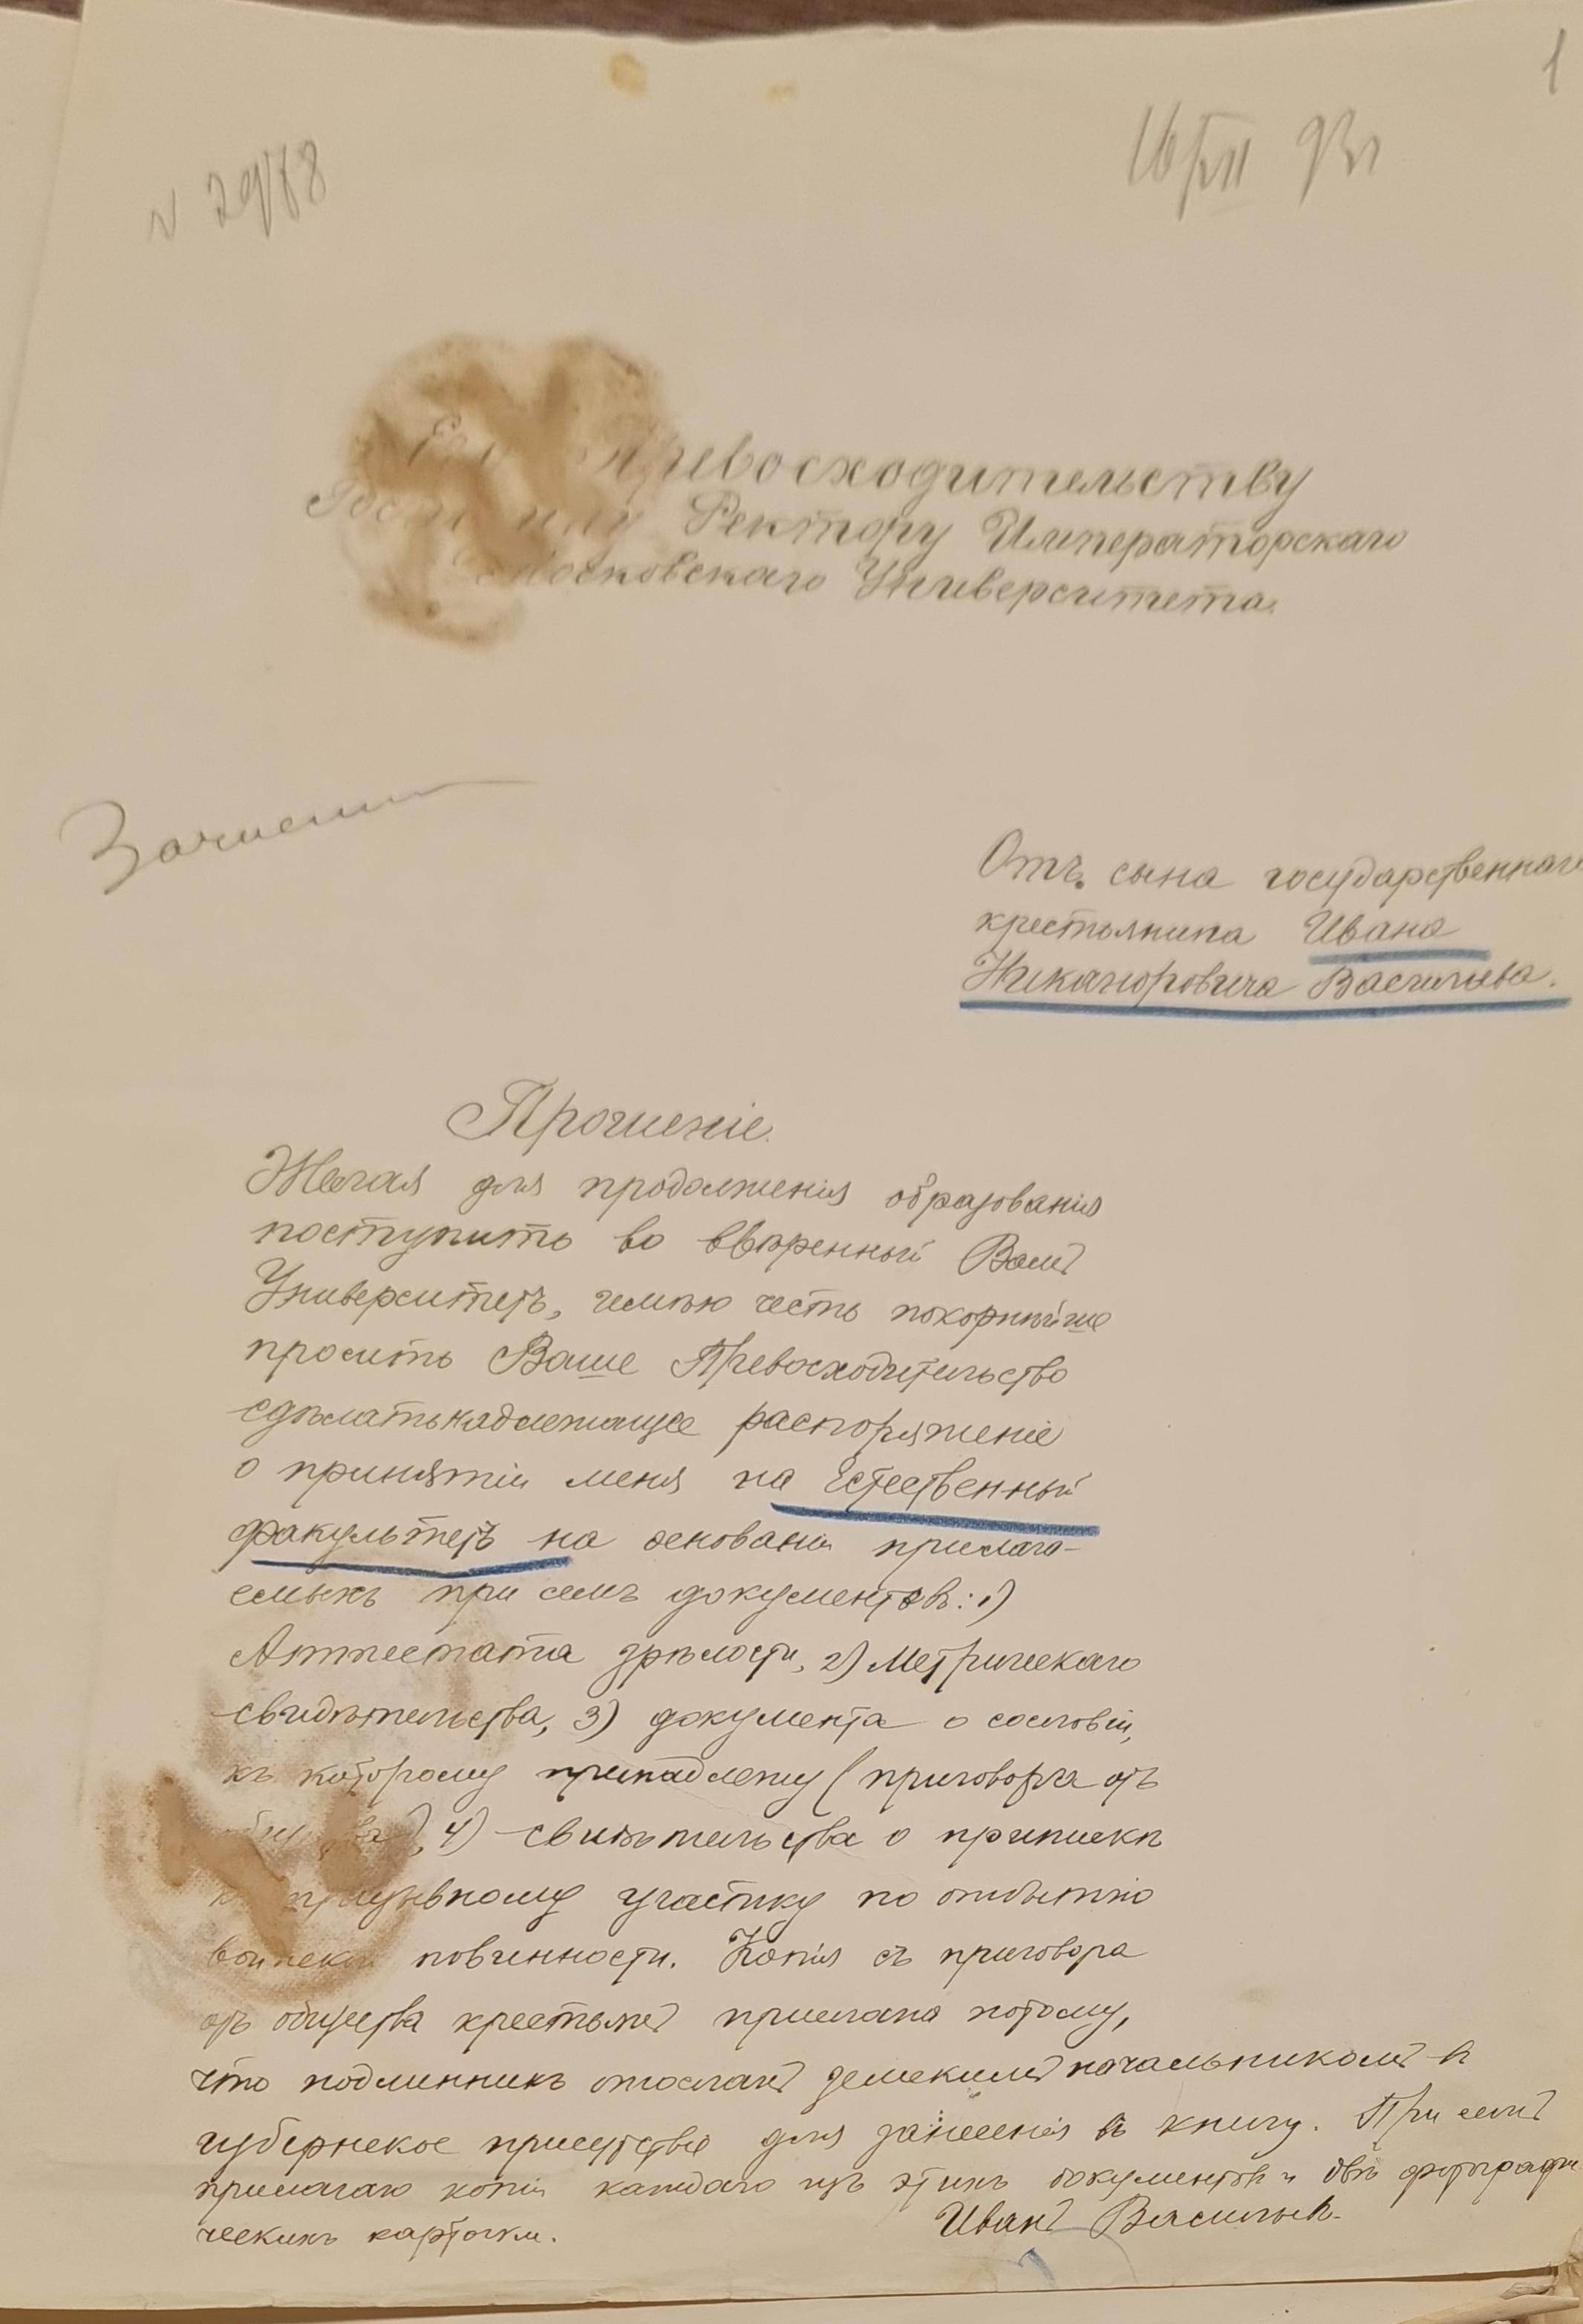 1
16/VII 93 г
N 29
Превосходительству
Ректору Императорскаго
Московскаго Университета.
Отъ сына государственнаго
крестьянина Ивана
Никаноровича Васильева.
Прошеніе.
Желая для продолженія образованія
поступить во ввѣренный Вамъ
Университетъ, имѣю честь покорнѣйше
просить Ваше Превосходительство
сдѣлать надлежащее распоряженіе
о принятіи меня на Естественный
факультетъ на основаніи прилага-
емыхъ при семъ документовъ: 1)
Аттестата зрѣлости, 2) Метрическаго
свидѣтельства, 3) документа о сословіи,
къ которому принадлежу (приговора отъ
4) свидѣтельства о припискѣ
призывному участку по отбытію
воинской повинности. Копія съ приговора
отъ общества крестьянъ прислана потому,
что подлинникъ отосланъ земскимъ начальникомъ в
губернское присутствіе для занесенія въ книгу. При семъ
прилагаю копіи каждаго изъ этихъ документовъ и двѣ фотографи
ческихъ карточки.
Иванъ Васильевъ.